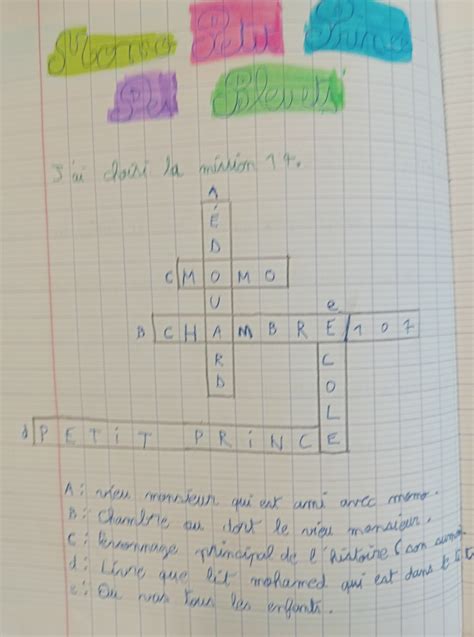 Momo Petit Prince
Des Bleuets
J'ai choisi la mission 14.
A
É
D
C M O M O
U e
B C H A M B R E 1 0 7
R C
D O
L
d P E T i T P R i N C E
A : vieu monsieur qui est ami avec momo.
B : Chambre ou dort le vieu monsieur.
C : Personnage principal de l'histoire (son surnom
d : Livre que lit mohamed qui est dans le
e : Ou vas tous les enfants.